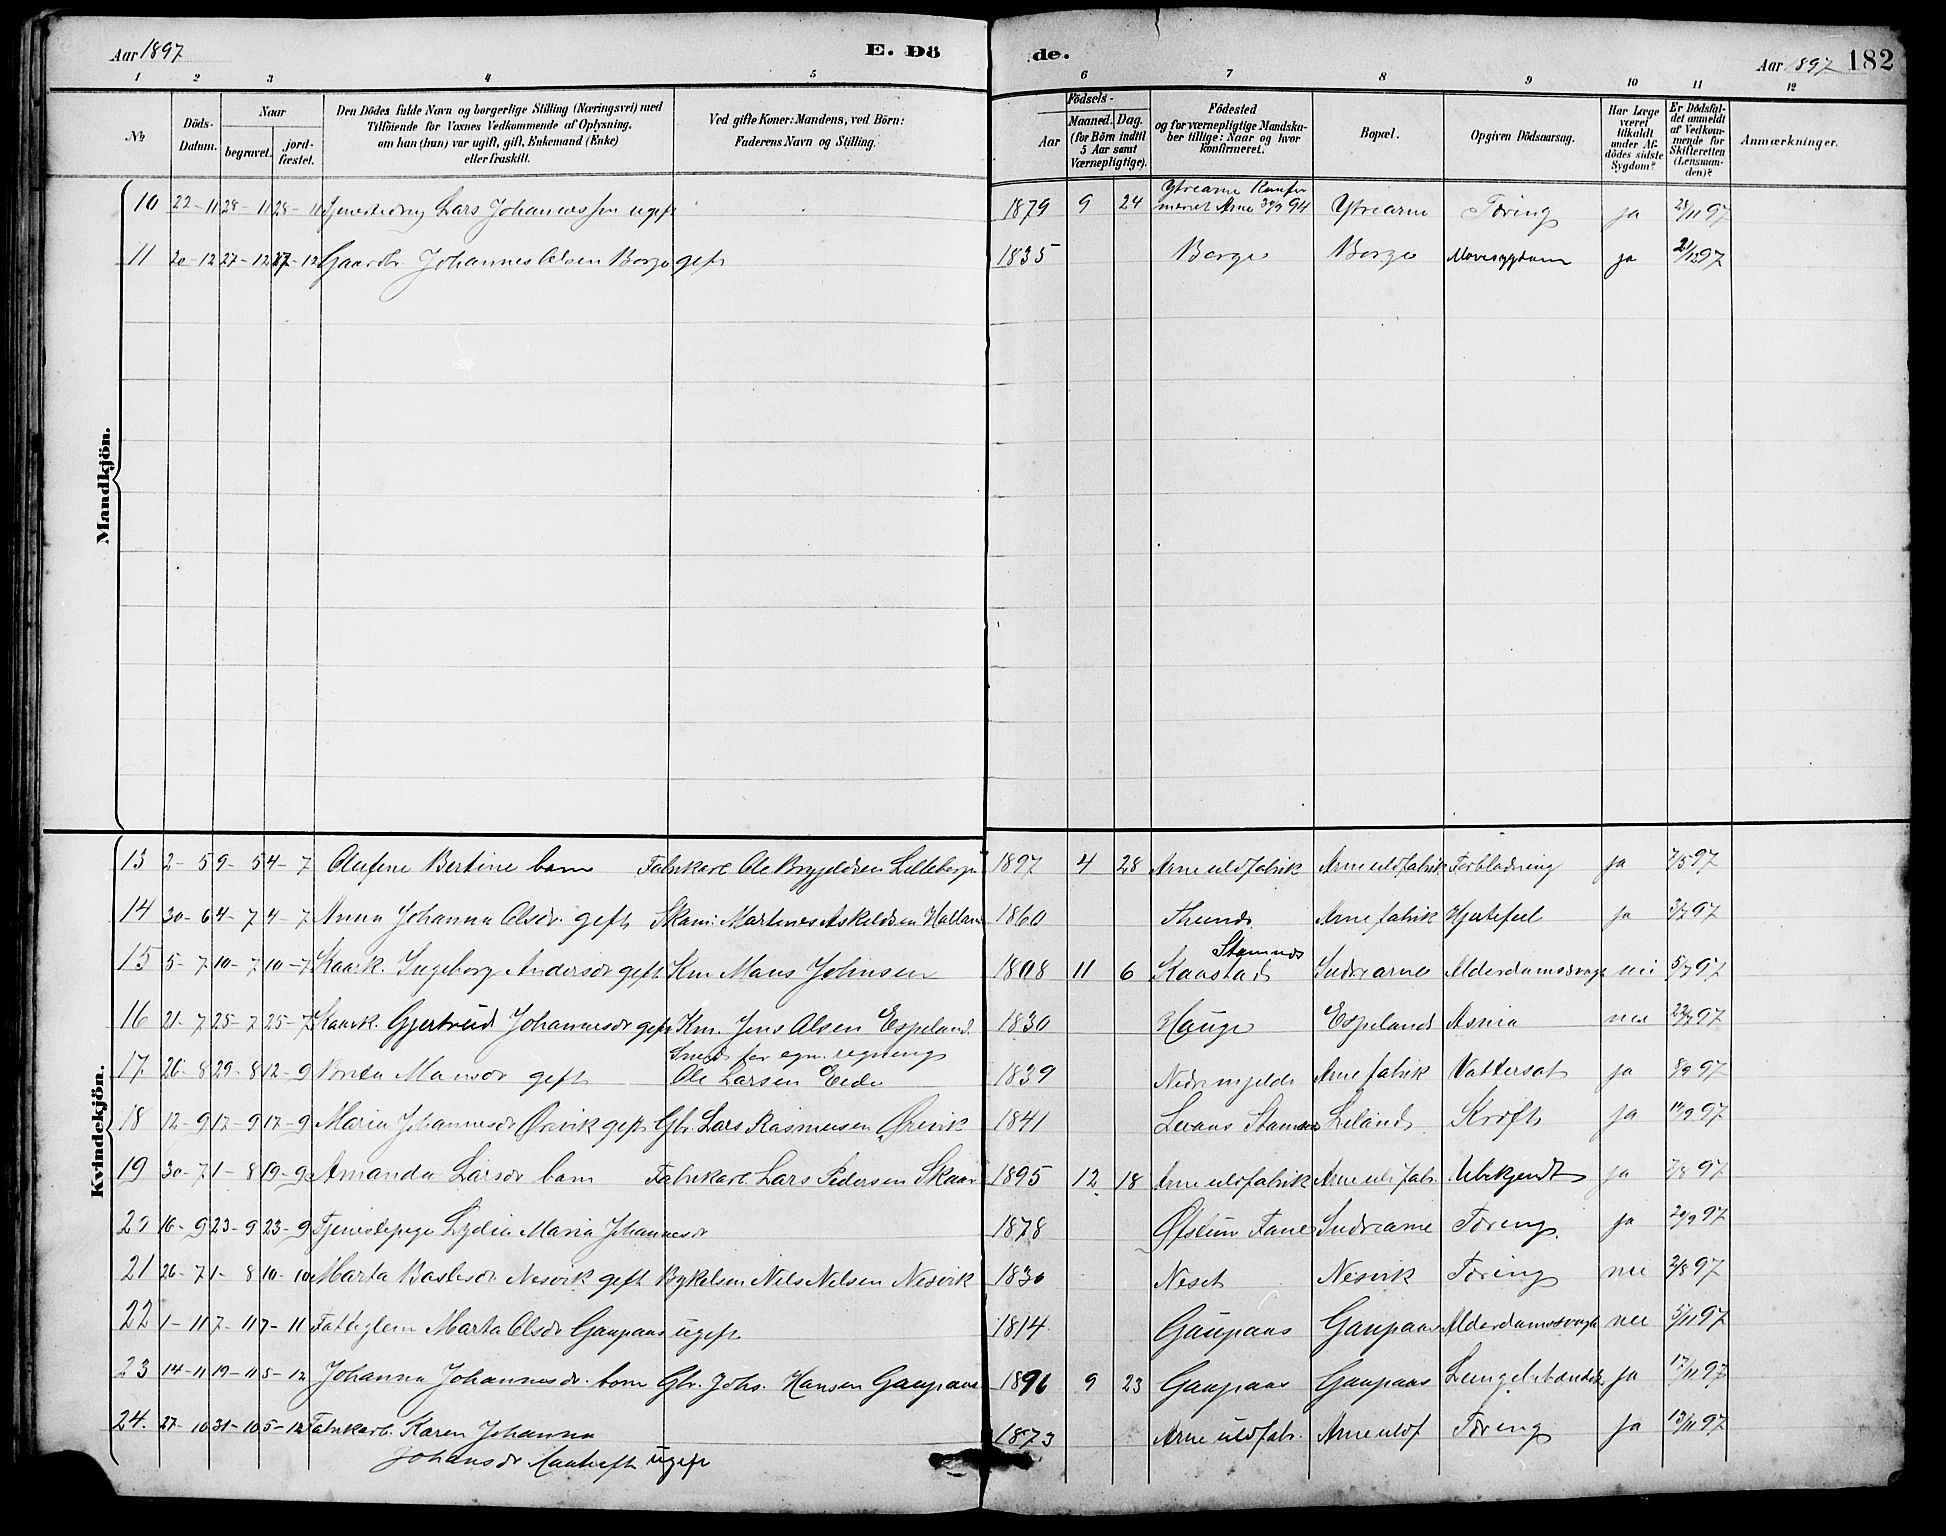 Aar 1897 E. Dö de. Aar 1897 182
1 2 3 4 5 6 7 8 9 10 11 12
№ Döds-Datum. Naar begravet. jordfæstet. Den Dödes fulde Navn og borgerlige Stilling (Næringsvei) med Tilföiende for Voxnes Vedkommende af Oplysning, om han (hun) var ugift, gift, Enkemand (Enke) eller fraskilt. Ved gifte Koner: Mandens, ved Börn: Faderens Navn og Stilling. Födsels- Aar Maaned. Dag. (for Börn indtil 5 Aar samt Værnepligtige). Födested og for værnepligtige Mandskaber tillige: Naar og hvor konfirmeret. Bopæl. Opgiven Dödsaarsag. Har Læge været tilkaldt under Afdödes sidste Sygdom? Er Dödsfaldet anmeldt af Vedkommende for Skifteretten (Lensmanden)? Anmærkninger.
Mandkjön.
10 22-11 28-11 28-11 Lars Johannessen ugift 1879 9 24 Ytrearne Konfirmeret Arne 30/9 94 Ytrearne Tæring ja 28/11 97
11 20-12 27-12 27-12 Gaardbr. Johannes Olsen Borge gift 1835 Borge Borge Mavesygdom ja 21/12 97
Kvindekjön.
13 2-5 9-5 4-7 Olufine Bertine barn Fabrikarb. Ole Lilleberge 1897 4 28 Arne uldfabrik Arne uldfabrik Forblødning ja 7/5 97
14 30-6 4-7 4-7 Anna Johanna Olsdr. gift Martinus Askeldsen 1860 Arne fabrik Hjertefeil ja 3/7 97
15 5-7 10-7 10-7 Kaark. Ingeborg Andersdr gift Km Mons Johnsen 1808 11 6 Kaastad Stamnes Indrearne Alderdomssvagh nei 5/7 97
16 21-7 25-7 25-7 Kaark. Gjertrud Johannesdr gift Km. Jens Olsen Espeland 1830 Hauge Espeland Asma nei 22/7 97
17 26-8 29-8 12-9 Brita Monsdr gift Smed for egn. regning Ole Larsen Eide 1839 Arne fabrik Vattersot ja 8/9 97
18 12-9 17-9 17-9 Maria Johannesdr Ørevik gift Gbr. Lars Rasmussen Ørevik 1841 Stamnes Leland Kræft ja 14/9 97
19 30-7 1-8 19-9 Amanda Larsdr barn Fabrikarb. Lars Pedersen Skaar 1895 12 18 Arne uldfabrik Arne uldfabr. Ubekjendt ja 7/8 97
20 16-9 23-9 23-9 Tjenestepige Lydia Maria Johannesdr 1878 Øfstun Fane Indrearne Tæring ja 20/9 97
21 26-7 1-8 10-10 Marta Nesvik gift Nils Nilsen Nesvik 1830 Neset Nesvik Tæring nei 2/8 97
22 1-11 7-11 7-11 Fattiglem Marta Olsdr Gaupaas ugift 1814 Gaupaas Gaupaas Alderdomssvagh nei 5/11 97
23 14-11 19-11 5-12 Johanna Johannesdr. barn Gbr. Johs. Hansen Gaupaas 1896 9 23 Gaupaas Gaupaas ja 17/11 97
24. 27-10 31-10 5-12 Fabrikarb. Karen Johanna 1873 Arne uldfabr. Arne uldf Tæring ja 13/11 97
Johansdr ugift